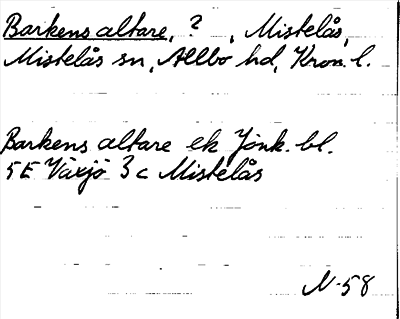 Barkens altare, ?, Mistelås,
Mistelås sn, Allbo hd, Kron. l.
Barkens altare ek Jönk. bl.
5E Växjö 3c Mistelås
N-58